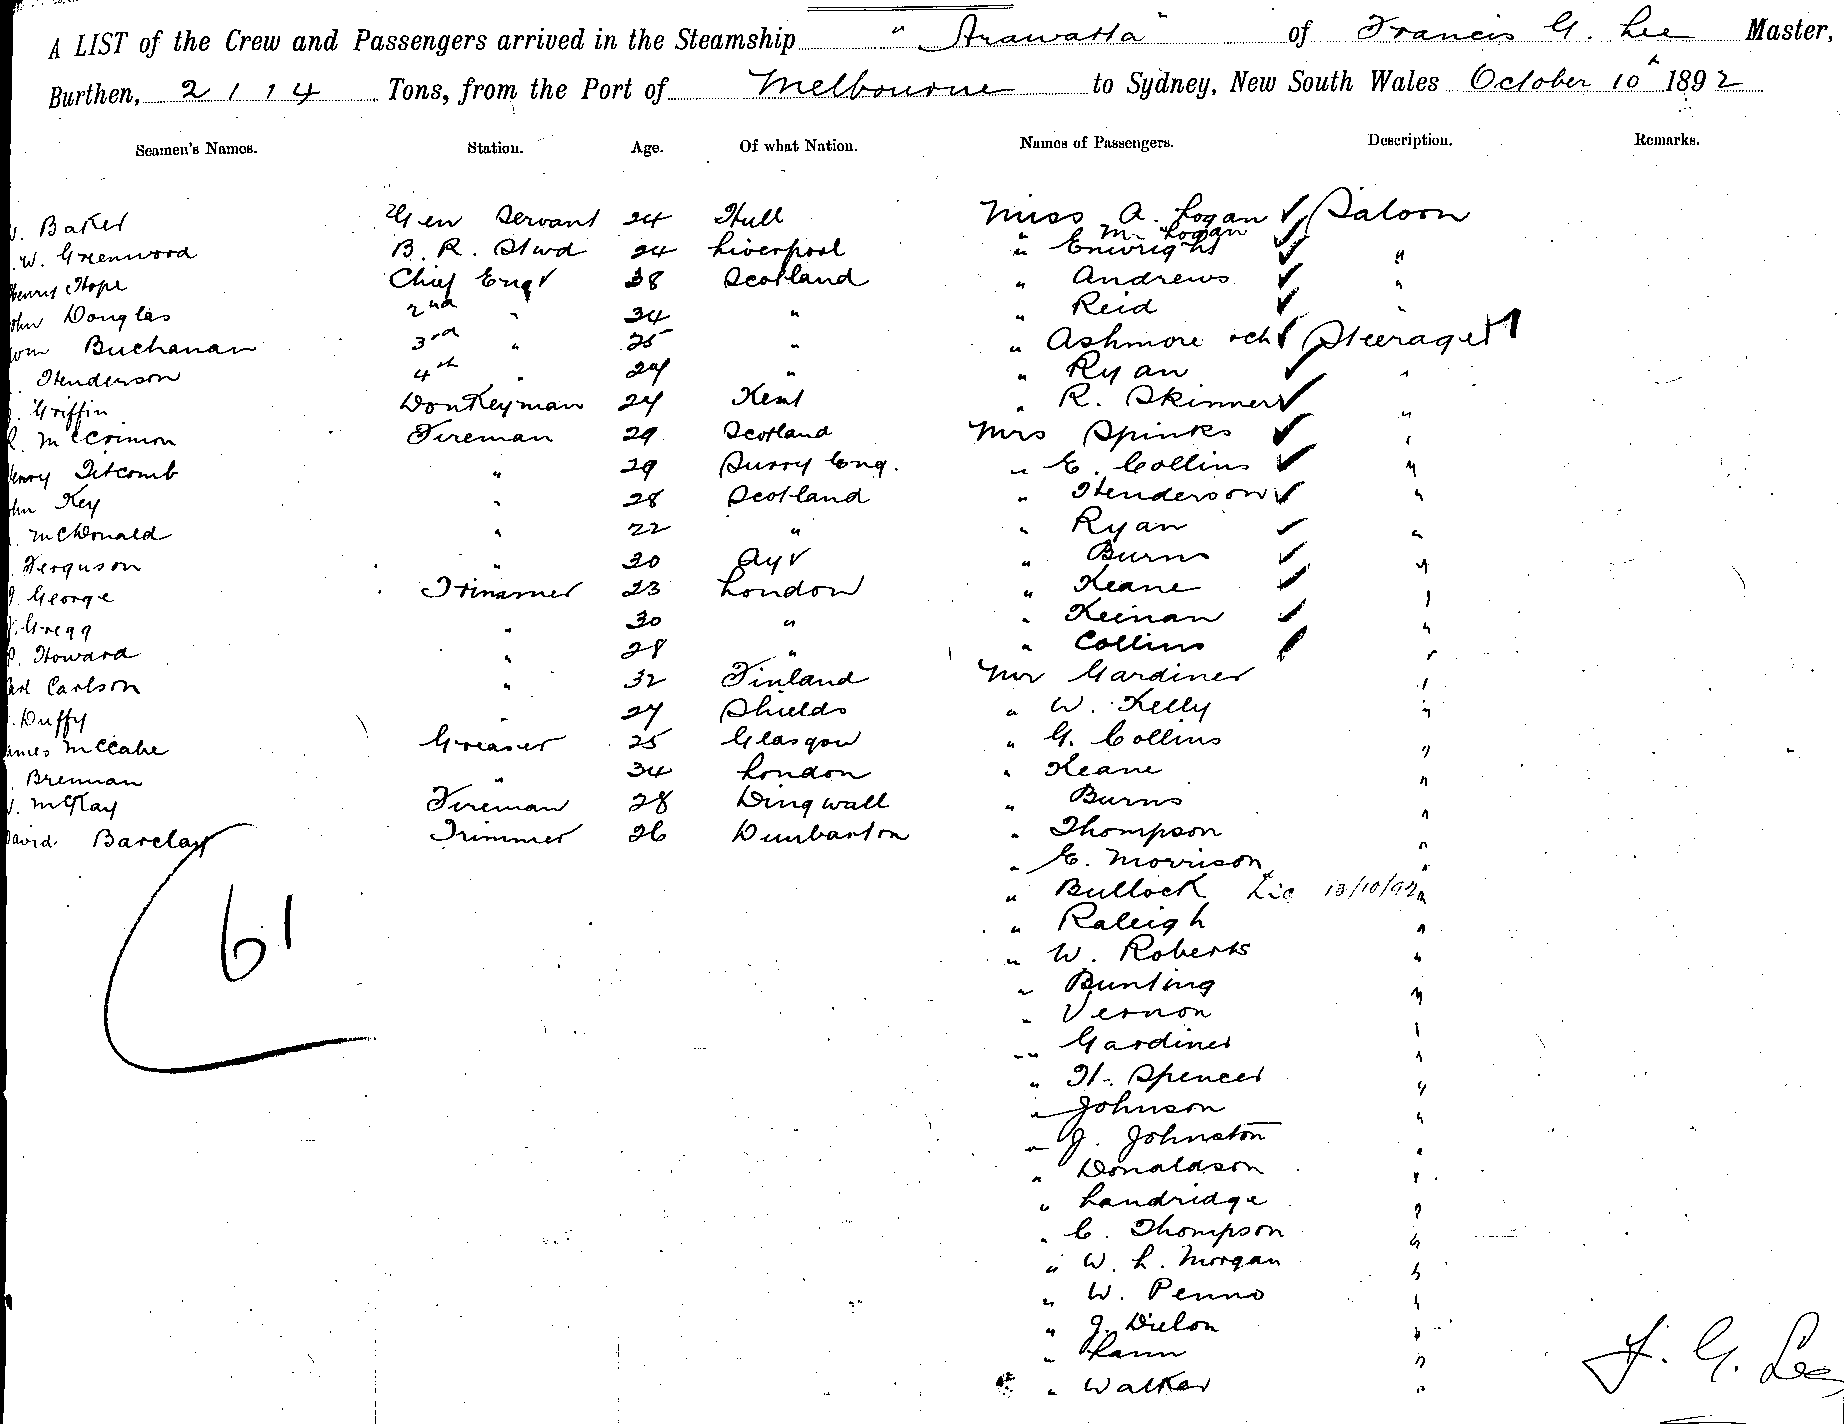 A LIST of the Crew and Passengers arrived in the Steamship "Arawatta" of Francis G. Lee Master,
Burthen, 2114 Tons, from the Port of Melbourne to Sydney, New South Wales October 10th 1892
Seamen's Names. Station. Age. Of what Nation. Names of Passengers. Description. Remarks.
Baker Gen Servant 24 Hull Miss A. Logan Saloon
M. Logan
W. Greenwood B. R. Stwd 24 Liverpool " Enwright "
Henry Hope Chief Engr 38 Scotland " Andrews "
John Douglas 2nd " 34 " " Reid "
Buchanan 3rd " 25 " " Ashmore Steerage
Henderson 4th " " " Ryan "
Griffin Donkeyman 24 Kent " R. Skinner "
McCrimon Fireman 29 Scotland Mrs Spinks "
Henry Titcomb " 29 Surry Eng. " E. Collins "
John Key " 28 Scotland " Henderson "
McDonald " 22 " " Ryan "
Ferguson " 30 Ayr " Burns "
George Trimmer 23 London " Keane "
Gregg " 30 " " Keenan "
Howard " 28 " " Collins "
Carl Carlson " 32 Finland Mr Gardiner "
Duffy " 27 Shields " W. Kelly "
James McCabe Greaser 25 Glasgow " G. Collins "
Brennan " 34 London " Keane "
McKay Fireman 28 Dingwall " Burns "
David Barclay Trimmer 26 Dunbarton " Thompson "
" E. Morrison "
61 " Bullock Lic 13/10/92 "
" Raleigh "
" W. Roberts "
" Bunting "
" Vernon "
" Gardiner "
" H. Spencer "
" Johnson "
" J. Johnston "
" Donaldson "
" Landridge "
" C. Thompson "
" W. L. Morgan "
" W. Penno "
" J. Dielon "
" "
" Walker "
F. G. Lee